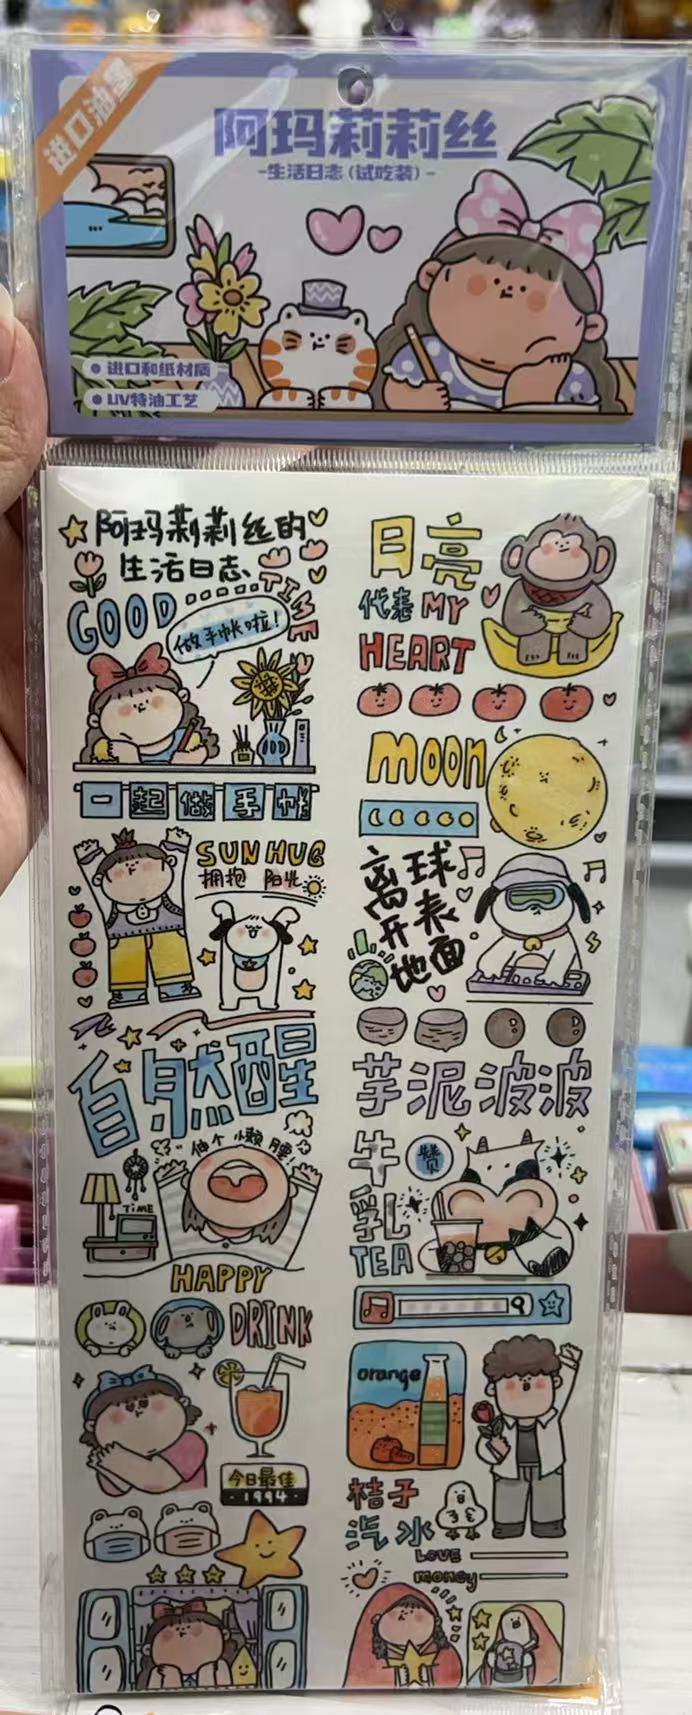 进口油墨
阿玛莉莉丝
-生活日志(试吃装)-
进口和纸材质
UV特油工艺
阿玛莉莉丝的
生活日志
GOOD
TIME
做手帐啦!
一起做手帐
SUN HUG
拥抱 阳光
自然醒
伸个小懒腰!!
TIME
HAPPY
DRINK
今日最佳
1994
月亮
代表 MY
HEART
moon
离球
开表
地面
芋泥波波
牛
赞
乳
TEA
orange
桔子
汽水
LOVE
money